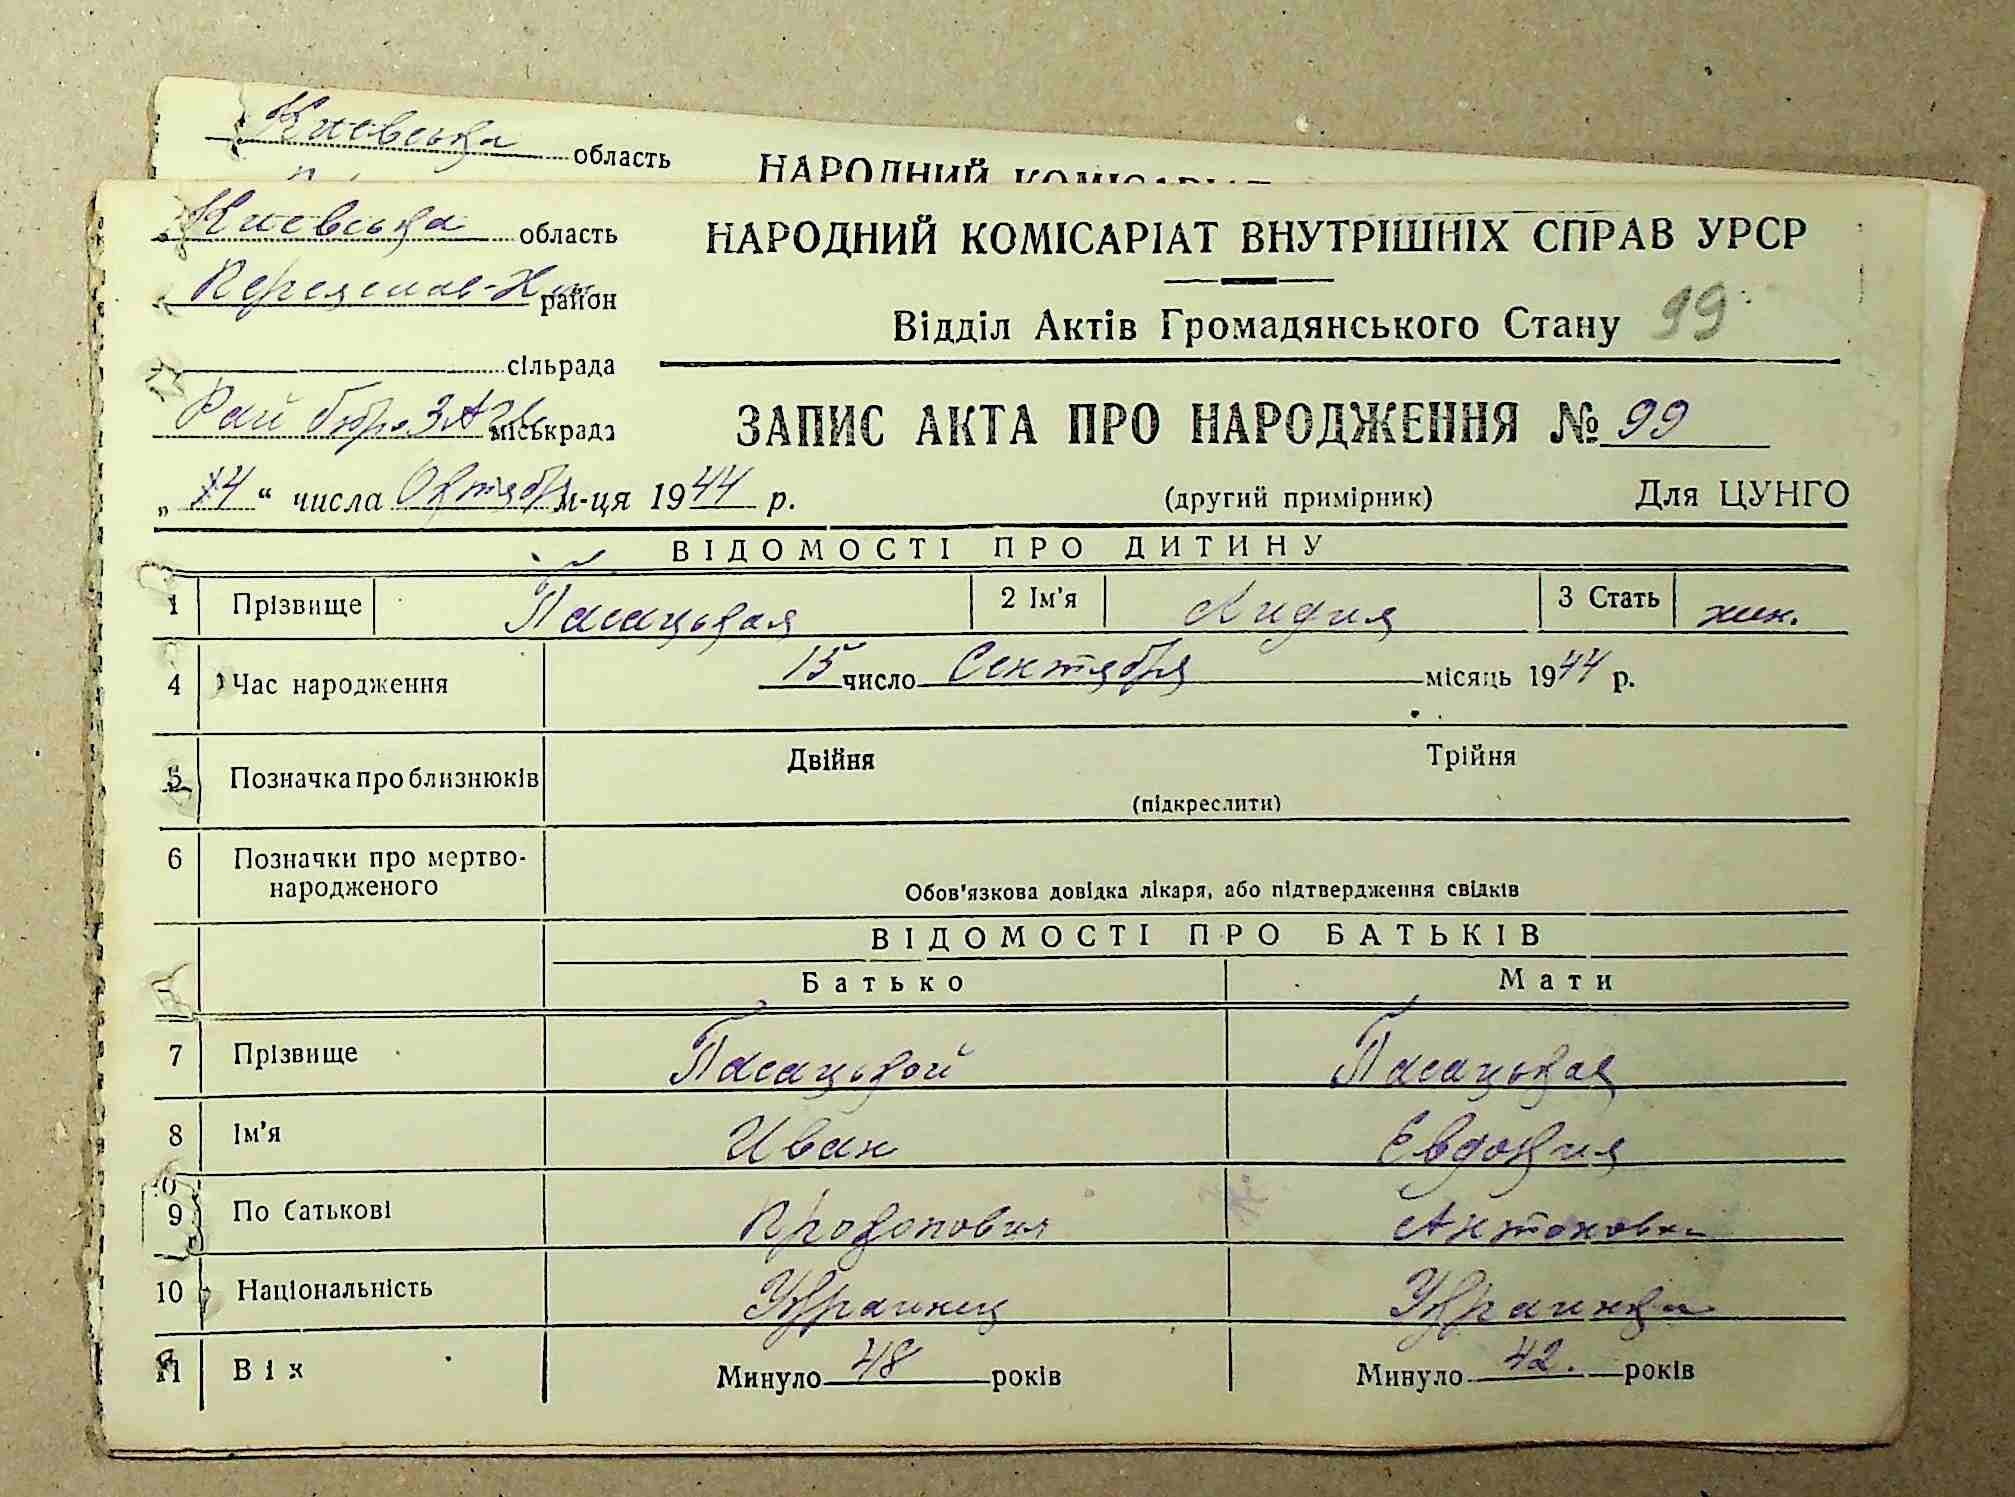 Киевська область
НАРОДНИЙ КОМІСАРІАТ
Киевська область
НАРОДНИЙ КОМІСАРІАТ ВНУТРІШНІХ СПРАВ УРСР
Переяслав-Хм район
Відділ Актів Громадянського Стану 99
сільрада
Рай бюро ЗАГС міськрада
ЗАПИС АКТА ПРО НАРОДЖЕННЯ № 99
„ 14 “ числа Октября м-ця 1944 р.
(другий примірник) Для ЦУНГО
ВІДОМОСТІ ПРО ДИТИНУ
1 Прізвище Пасацькая 2 Ім'я Лидия 3 Стать жин.
4 Час народження 15 число Сентября місяць 1944 р.
5 Позначка про близнюків Двійня Трійня
(підкреслити)
6 Позначки про мертво-
народженого
Обов'язкова довідка лікаря, або підтвердження свідків
ВІДОМОСТІ ПРО БАТЬКІВ
Батько Мати
7 Прізвище Пасацькой Пасацькая
8 Ім'я Иван Евдокия
9 По батькові Прокопович Антоновна
10 Національність Украинец Украинка
11 Вік Минуло 48 років Минуло 42. років